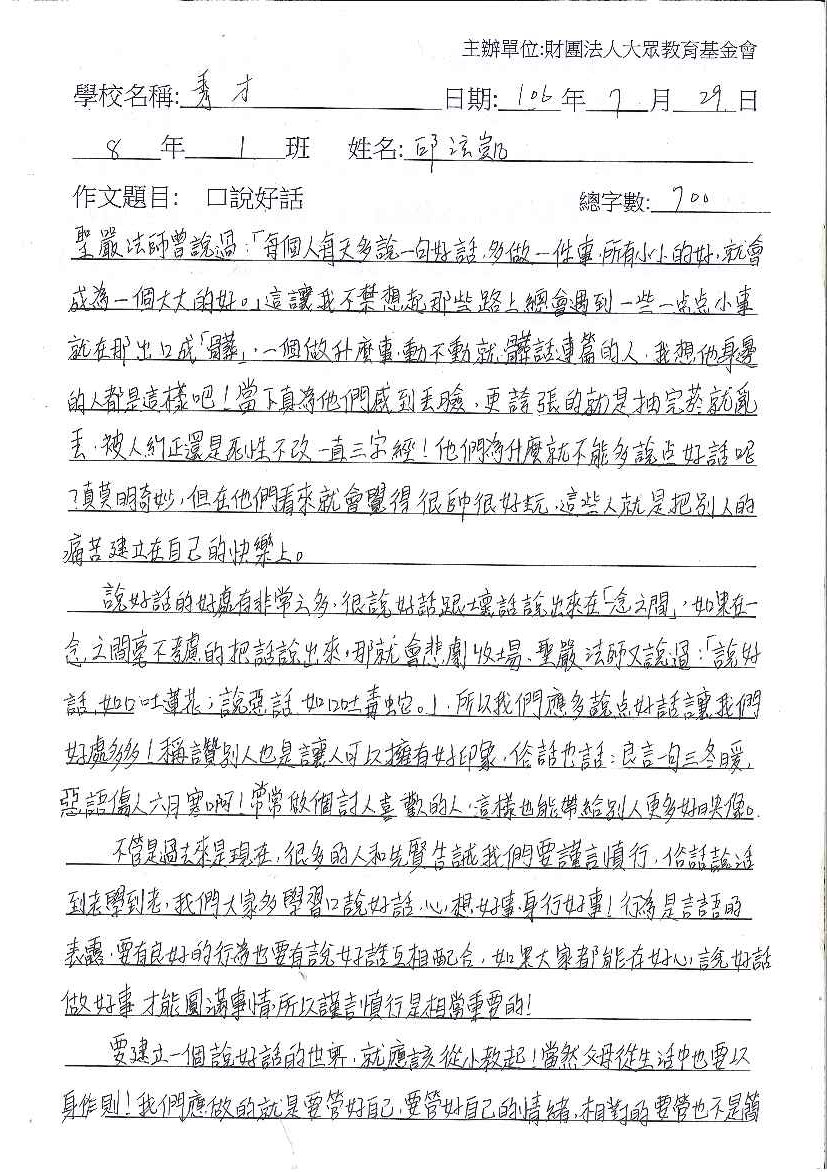 主辦單位:財團法人大眾教育基金會
學校名稱:秀才 日期:106年7月29日
8年1班 姓名:邱泫凱
作文題目: 口說好話 總字數:700
聖嚴法師曾說過:「每個人每天多說一句好話,多做一件事,所有小小的好,就會
成為一個大大的好。」這讓我不禁想起那些路上總會遇到一些一点点小事
就在那出口成「髒」,一個做什麼事,動不動就髒話連篇的人,我想他身邊
的人都是這樣吧!當下真為他們感到丟臉,更誇張的就是抽完菸就亂
丟,被人約正還是死性不改一直三字經!他們為什麼就不能多說点好話呢
?真莫明奇妙,但在他們看來就會覺得很帥很好玩,這些人就是把別人的
痛苦建立在自己的快樂上。
說好話的好處有非常之多,很說好話跟壞話說出來在「一念之間」,如果在一
念之間毫不考慮的把話說出來,那就會悲劇收場、聖嚴法師又說過:「說好
話,如口吐蓮花;說惡話,如口吐毒蛇。」,所以我們應多說点好話讓我們
好處多多!稱讚別人也是讓人可以擁有好印象,俗話也話:良言一句三冬暖,
惡語傷人六月寒啊!常常做個討人喜歡的人,這樣也能帶給別人更多好映像。
不管是過去來是現在,很多的人和先賢告誡我們要謹言慎行,俗話說活
到老學到老,我們大家多學習口說好話,心想好事,身行好事!行為是言語的
表露,要有良好的行為也要有說好話互相配合,如果大家都能存好心,說好話
做好事才能圓滿事情,所以謹言慎行是相當重要的!
要建立一個說好話的世界,就應該從小教起!當然父母從生活中也要以
身作則!我們應做的就是要管好自己,要管好自己的情緒,相對的要管也不是簡